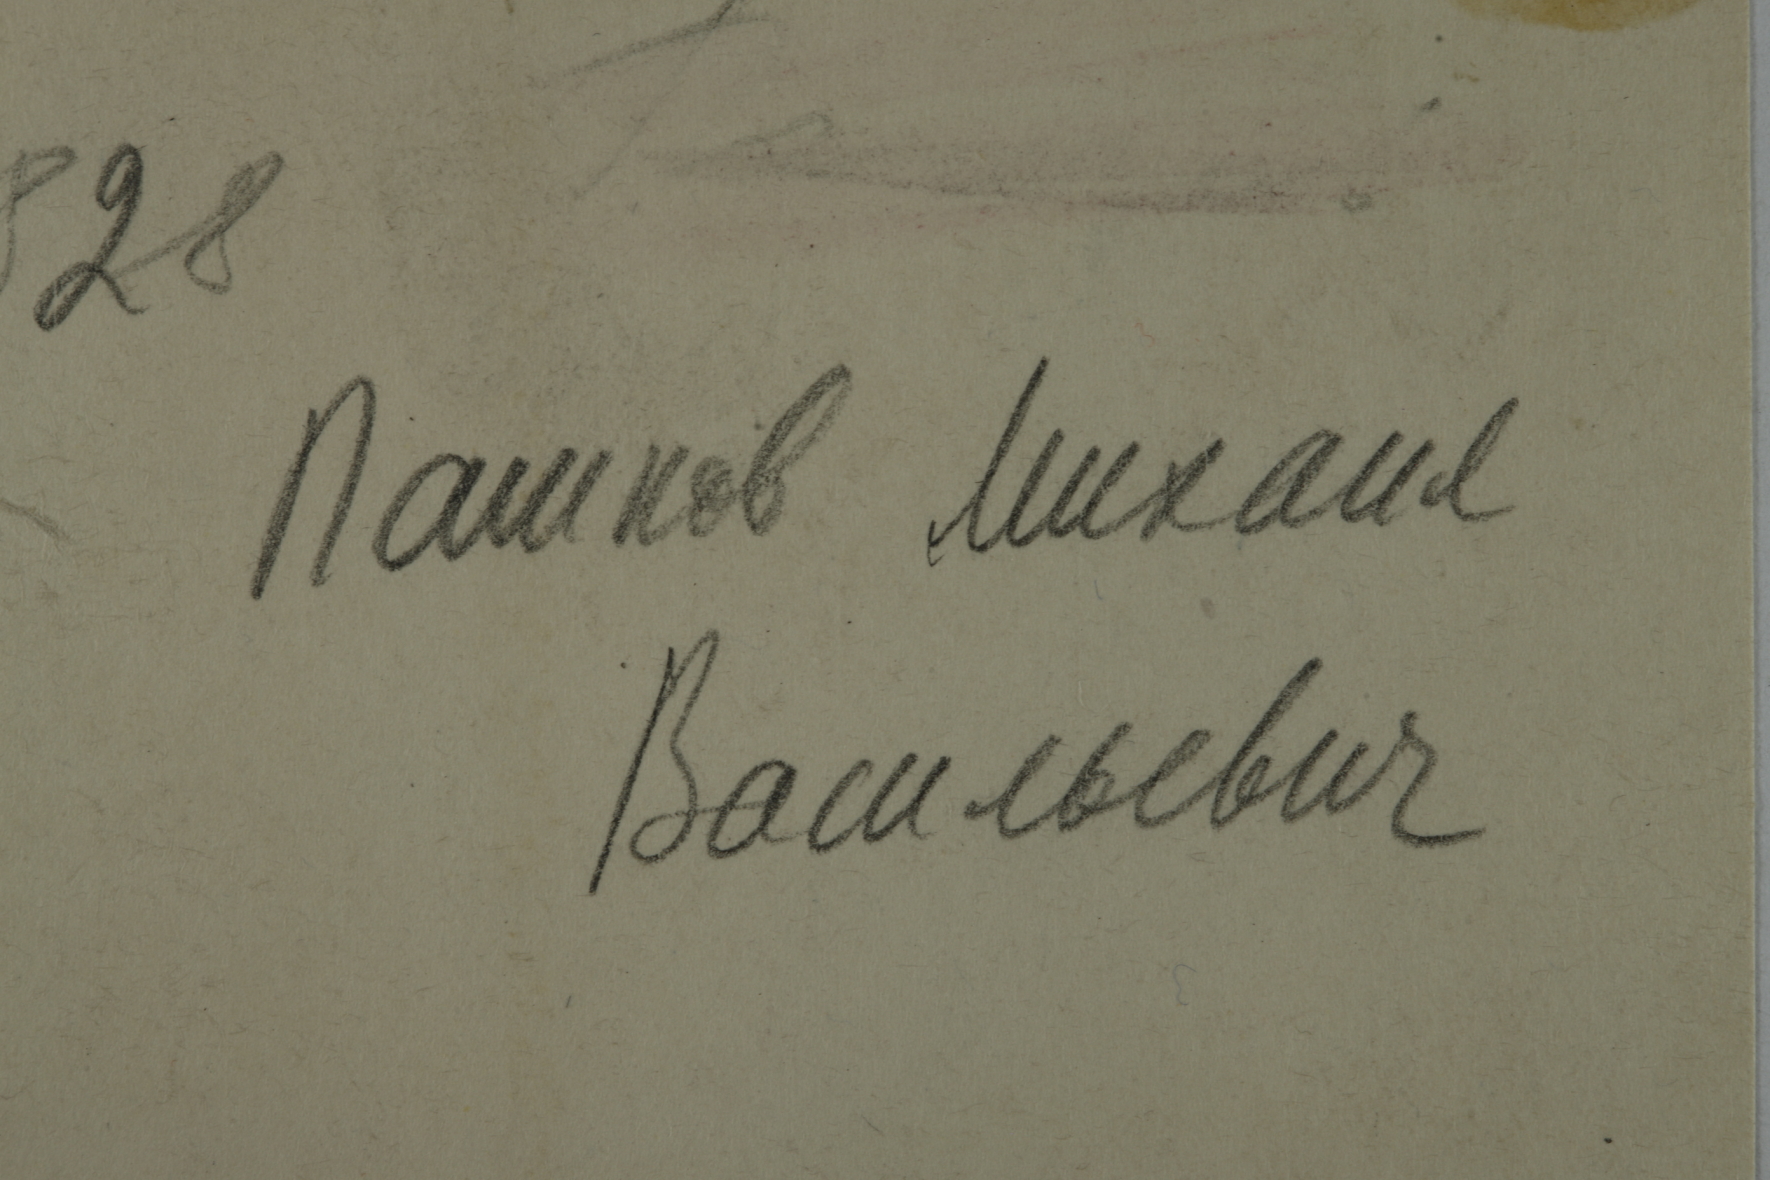 828
Пашков Михаил
Васильевич